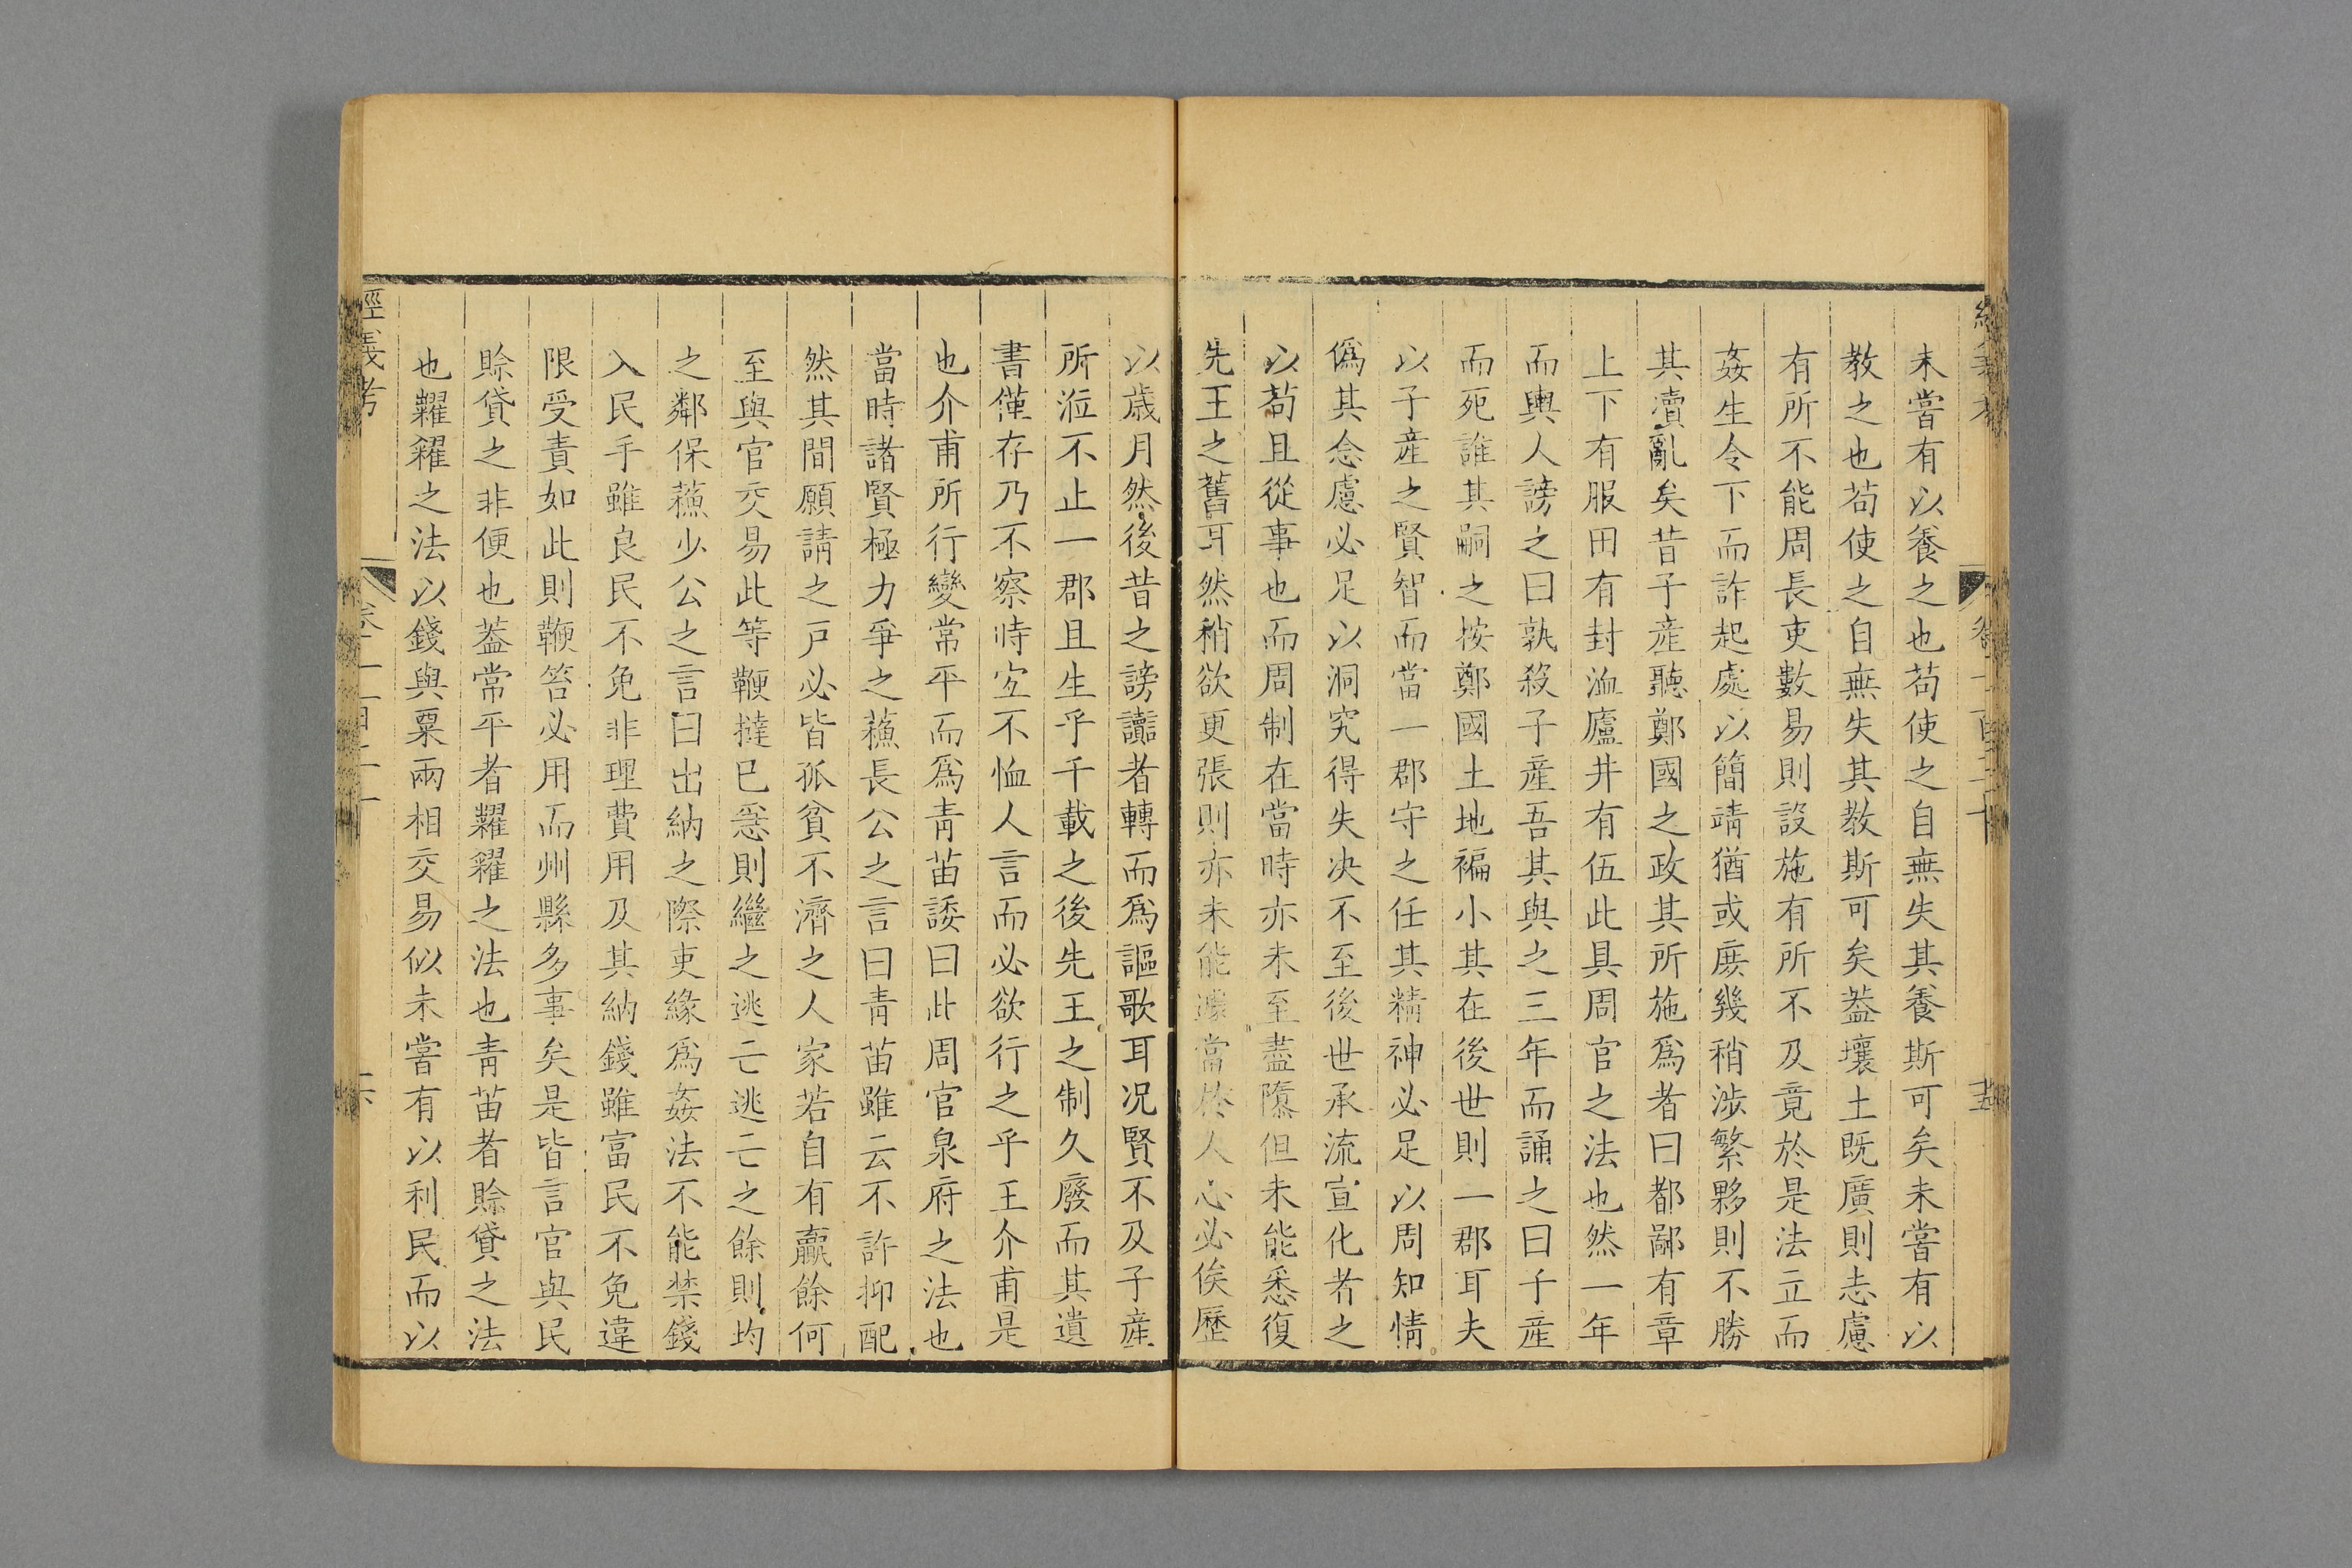 未嘗有以養之也苟使之自無失其養斯可矣未嘗有以
教之也苟使之自無失其教斯可矣葢壤土既廣則志慮
有所不能周長吏數易則設施有所不及竟於是法立而
姦生令下而詐起處以簡靖猶或庶幾稍涉繁夥則不勝
其瀆亂矣昔子產聽鄭國之政其所施爲者曰都鄙有章
上下有服田有封洫廬井有伍此具周官之法也然一年
而輿人謗之曰孰殺子產吾其與之三年而誦之曰子產
而死誰其嗣之按鄭國土地褊小其在後世則一郡耳夫
以子產之賢智而當一郡守之任其精神必足以周知情
僞其念慮必足以洞究得失决不至後世承流宣化者之
以苟且從事也而周制在當時亦未至盡隳但未能悉復
先王之舊耳然稍欲更張則亦未能遽當於人心必俟歷
以歲月然後昔之謗讟者轉而爲謳歌耳况賢不及子產
所涖不止一郡且生乎千載之後先王之制久廢而其遺
書僅存乃不察時宜不恤人言而必欲行之乎王介甫是
也介甫所行變常平而爲青苗諉曰此周官泉府之法也
當時諸賢極力爭之蘓長公之言曰青苗雖云不許抑配
然其間願請之戸必皆孤貧不濟之人家若自有贏餘何
至與官交易此等鞭撻已急則繼之逃亡逃亡之餘則均
之鄰保蘓少公之言曰出納之際吏緣爲姦法不能禁錢
入民手雖良民不免非理費用及其納錢雖富民不免違
限受責如此則鞭笞必用而州縣多事矣是皆言官與民
賒貸之非便也葢常平者糶糴之法也青苗者賒貸之法
也糶糴之法以錢與粟兩相交易似未嘗有以利民而以
經義考